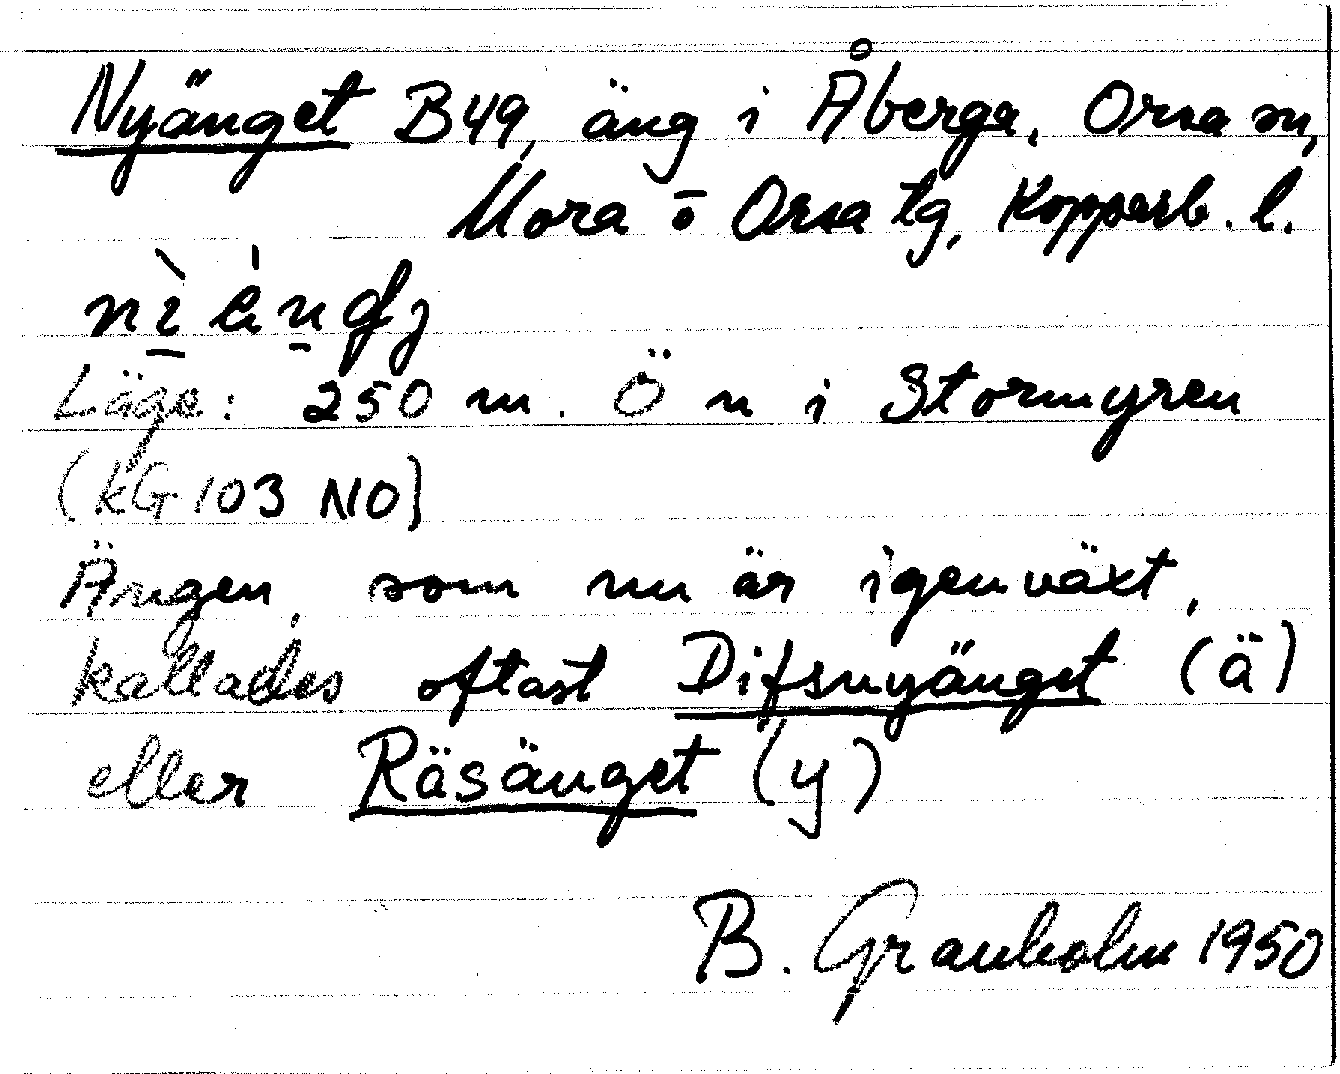 Nyänget B49, äng i Åberga, Orsa sn,
Mora o Orsa tg, Kopparb. l.
Läge: 250 m. Ö n i Stormyren
(kG 103 NO)
Ängen, som nu är igenväxt,
kallades oftast Difsnyänget (ä)
eller Räsänget (y)
B. Granholm 1950